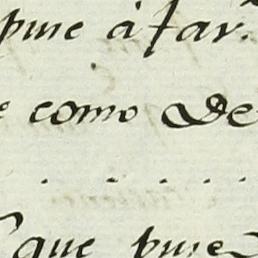 puse a far.
e como De
. . . . .
que puse